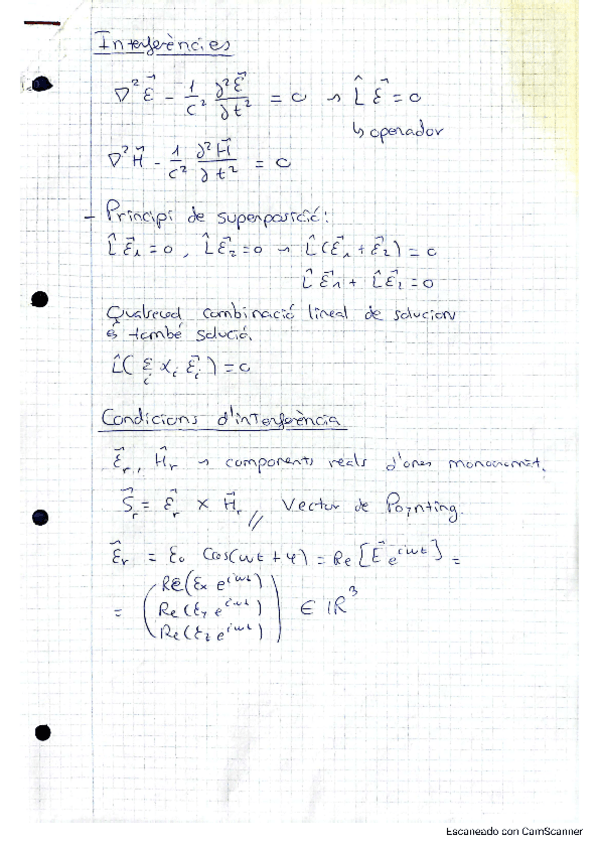 Interferències
∇² ℰ⃗ - 1/c² ∂²ℰ⃗/∂t² = 0 ⇝ L̂ ℰ⃗ = 0
↳ operador
∇² H⃗ - 1/c² ∂²H⃗/∂t² = 0
- Principi de superposició:
L̂ ℰ⃗₁ = 0, L̂ ℰ⃗₂ = 0 ⇝ L̂(ℰ⃗₁ + ℰ⃗₂) = 0
L̂ ℰ⃗₁ + L̂ ℰ⃗₂ = 0
Qualsevol combinació lineal de solucions
és també solució.
L̂( Σᵢ αᵢ ℰ⃗ᵢ ) = 0
Condicions d'interferència
ℰ⃗r, H⃗r ⇝ components reals d'ones monocromàt.
S⃗r = ℰ⃗r × H⃗r // Vector de Poynting.
ℰ⃗r = ℰ₀ Cos(ωt + φ) = Re[E⃗ e^{iωt}] =
= ( Re(ℰx e^{iωt})
Re(ℰy e^{iωt}) ∈ ℝ³
Re(ℰz e^{iωt}) )
Escaneado con CamScanner